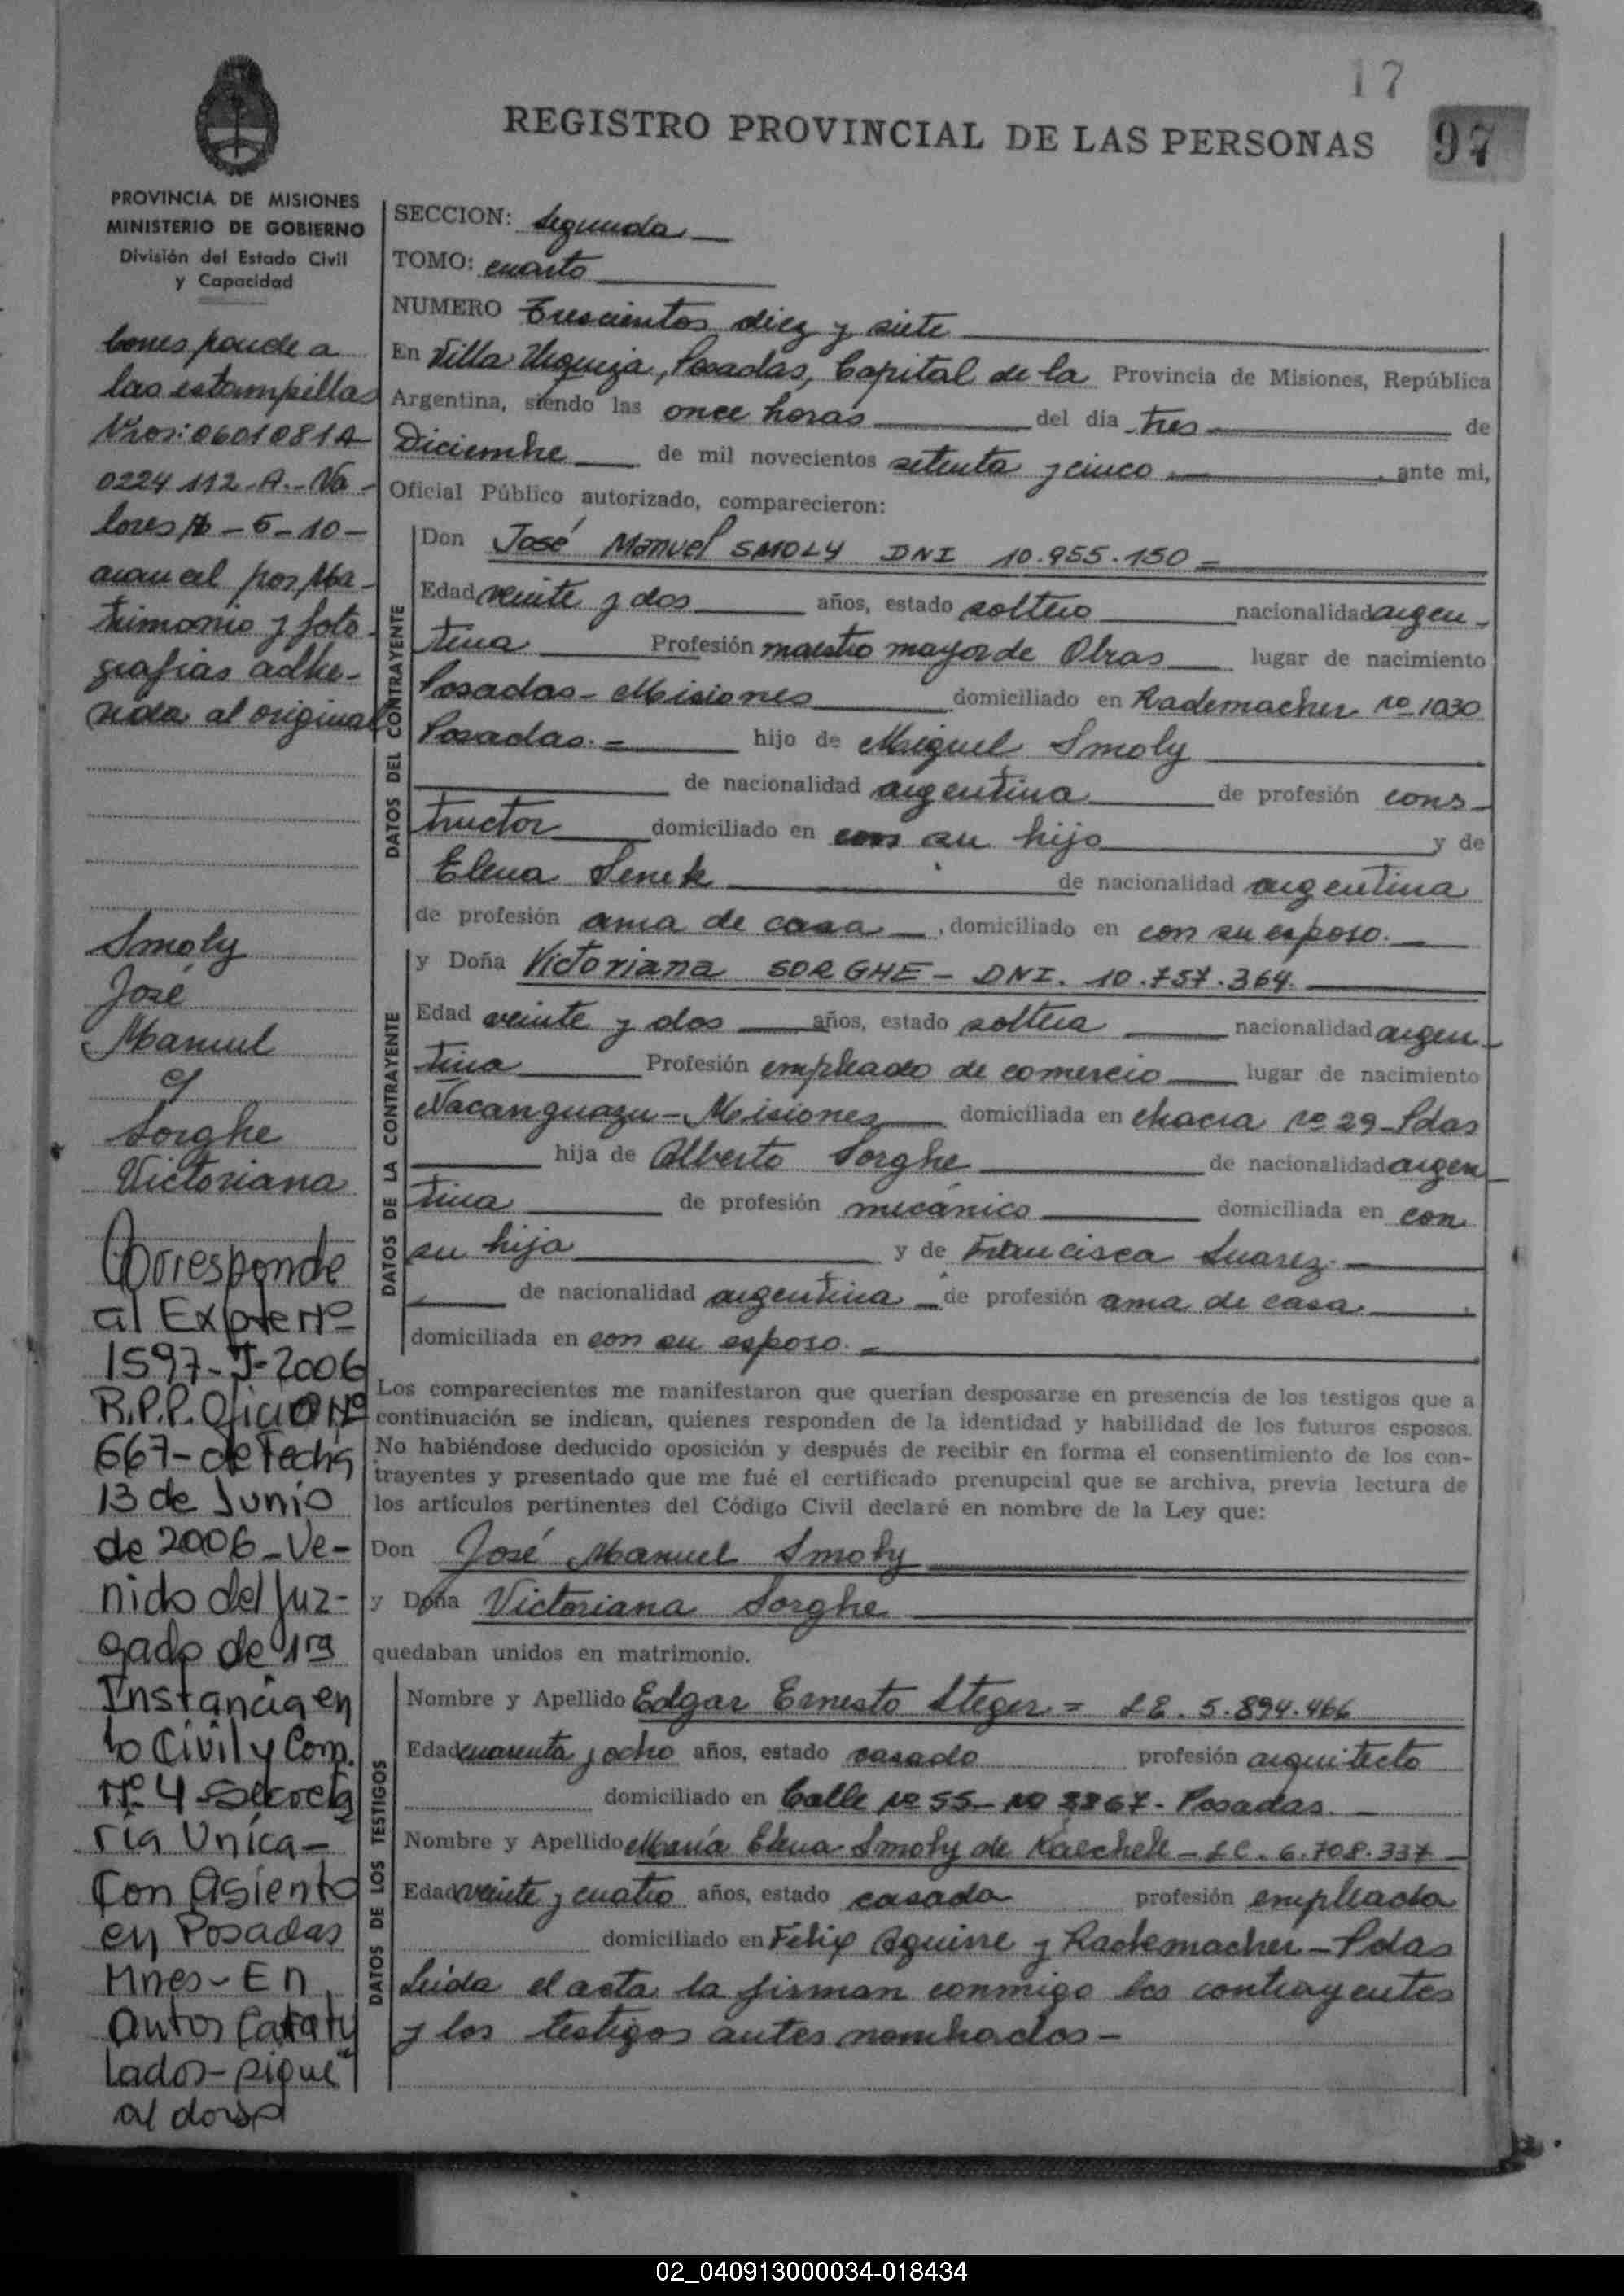 17
REGISTRO PROVINCIAL DE LAS PERSONAS
97
PROVINCIA DE MISIONES
MINISTERIO DE GOBIERNO
División del Estado Civil
y Capacidad
Corresponde a
las estampillas
Nros: 0601081A
0224112-A.-Va-
lores $ - 5 - 10 -
arancel por Ma-
trimonio y foto-
grafias adhe-
rida al original
Smoly
José
Manuel
c/
Sorghe
Victoriana
Corresponde
al Expte Nº
1597-J-2006
R.P.P. Oficio Nº
667- de Fecha
13 de Junio
de 2006 - Ve-
nido del Juz-
gado de 1ra
Instancia en
lo Civil y Com.
Nº 4 - Secreta
ría Unica -
Con Asiento
en Posadas
Mnes - En
Autos Caratu
lados - sigue
al dorso
SECCION: Segunda
TOMO: cuarto
NUMERO Trescientos diez y siete
En Villa Urquiza, Posadas, Capital de la Provincia de Misiones, República
Argentina, siendo las once horas del día tres de
Diciembre de mil novecientos setenta y cinco, ante mi,
Oficial Público autorizado, comparecieron:
DATOS DEL CONTRAYENTE
Don José Manuel SMOLY DNI 10.955.150 =
Edad veinte y dos años, estado soltero nacionalidad argen-
tina Profesión maestro mayor de Obras lugar de nacimiento
Posadas - Misiones domiciliado en Rademacher nº 1030
Posadas. = hijo de Miguel Smoly
de nacionalidad argentina de profesión cons-
tructor domiciliado en con su hijo y de
Elena Senek de nacionalidad argentina
de profesión ama de casa, domiciliado en con su esposo.
DATOS DE LA CONTRAYENTE
y Doña Victoriana SORGHE - DNI. 10.757.364.
Edad veinte y dos años, estado soltera nacionalidad argen-
tina Profesión empleado de comercio lugar de nacimiento
Ñacanguazu - Misiones domiciliada en chacra nº 29 - Pdas
hija de Alberto Sorghe de nacionalidad argen
tina de profesión mecánico domiciliada en con
su hija y de Francisca Suarez.
de nacionalidad argentina de profesión ama de casa
domiciliada en con su esposo. =
Los comparecientes me manifestaron que querían desposarse en presencia de los testigos que a
continuación se indican, quienes responden de la identidad y habilidad de los futuros esposos.
No habiéndose deducido oposición y después de recibir en forma el consentimiento de los con-
trayentes y presentado que me fué el certificado prenupcial que se archiva, previa lectura de
los artículos pertinentes del Código Civil declaré en nombre de la Ley que:
Don José Manuel Smoly
y Doña Victoriana Sorghe
quedaban unidos en matrimonio.
DATOS DE LOS TESTIGOS
Nombre y Apellido Edgar Ernesto Steger = LE. 5.894.466
Edad cuarenta y ocho años, estado casado profesión arquitecto
domiciliado en Calle Nº 55 - Nº 3867 - Posadas.
Nombre y Apellido María Elena Smoly de Kaechele - LC. 6.708.337
Edad veinte y cuatro años, estado casada profesión empleada
domiciliado en Felix Aguirre y Rademacher - Pdas
Leida el acta la firman conmigo los contrayentes
y los testigos antes nombrados -
02_040913000034-018434